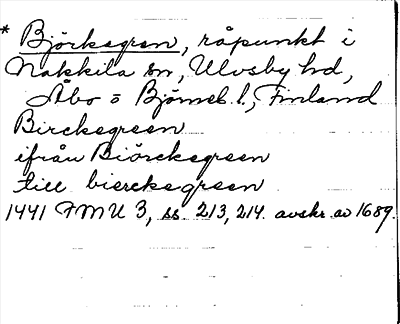 * Björksgren, råpunkt i
Nakkila sn, Ulvsby hd,
Åbo o Björneb. l., Finland
Bircksgreen
ifrån Biörcksgreen
till biercksgreen
1441 FMU 3, ss. 213, 214. avskr. av 1689.